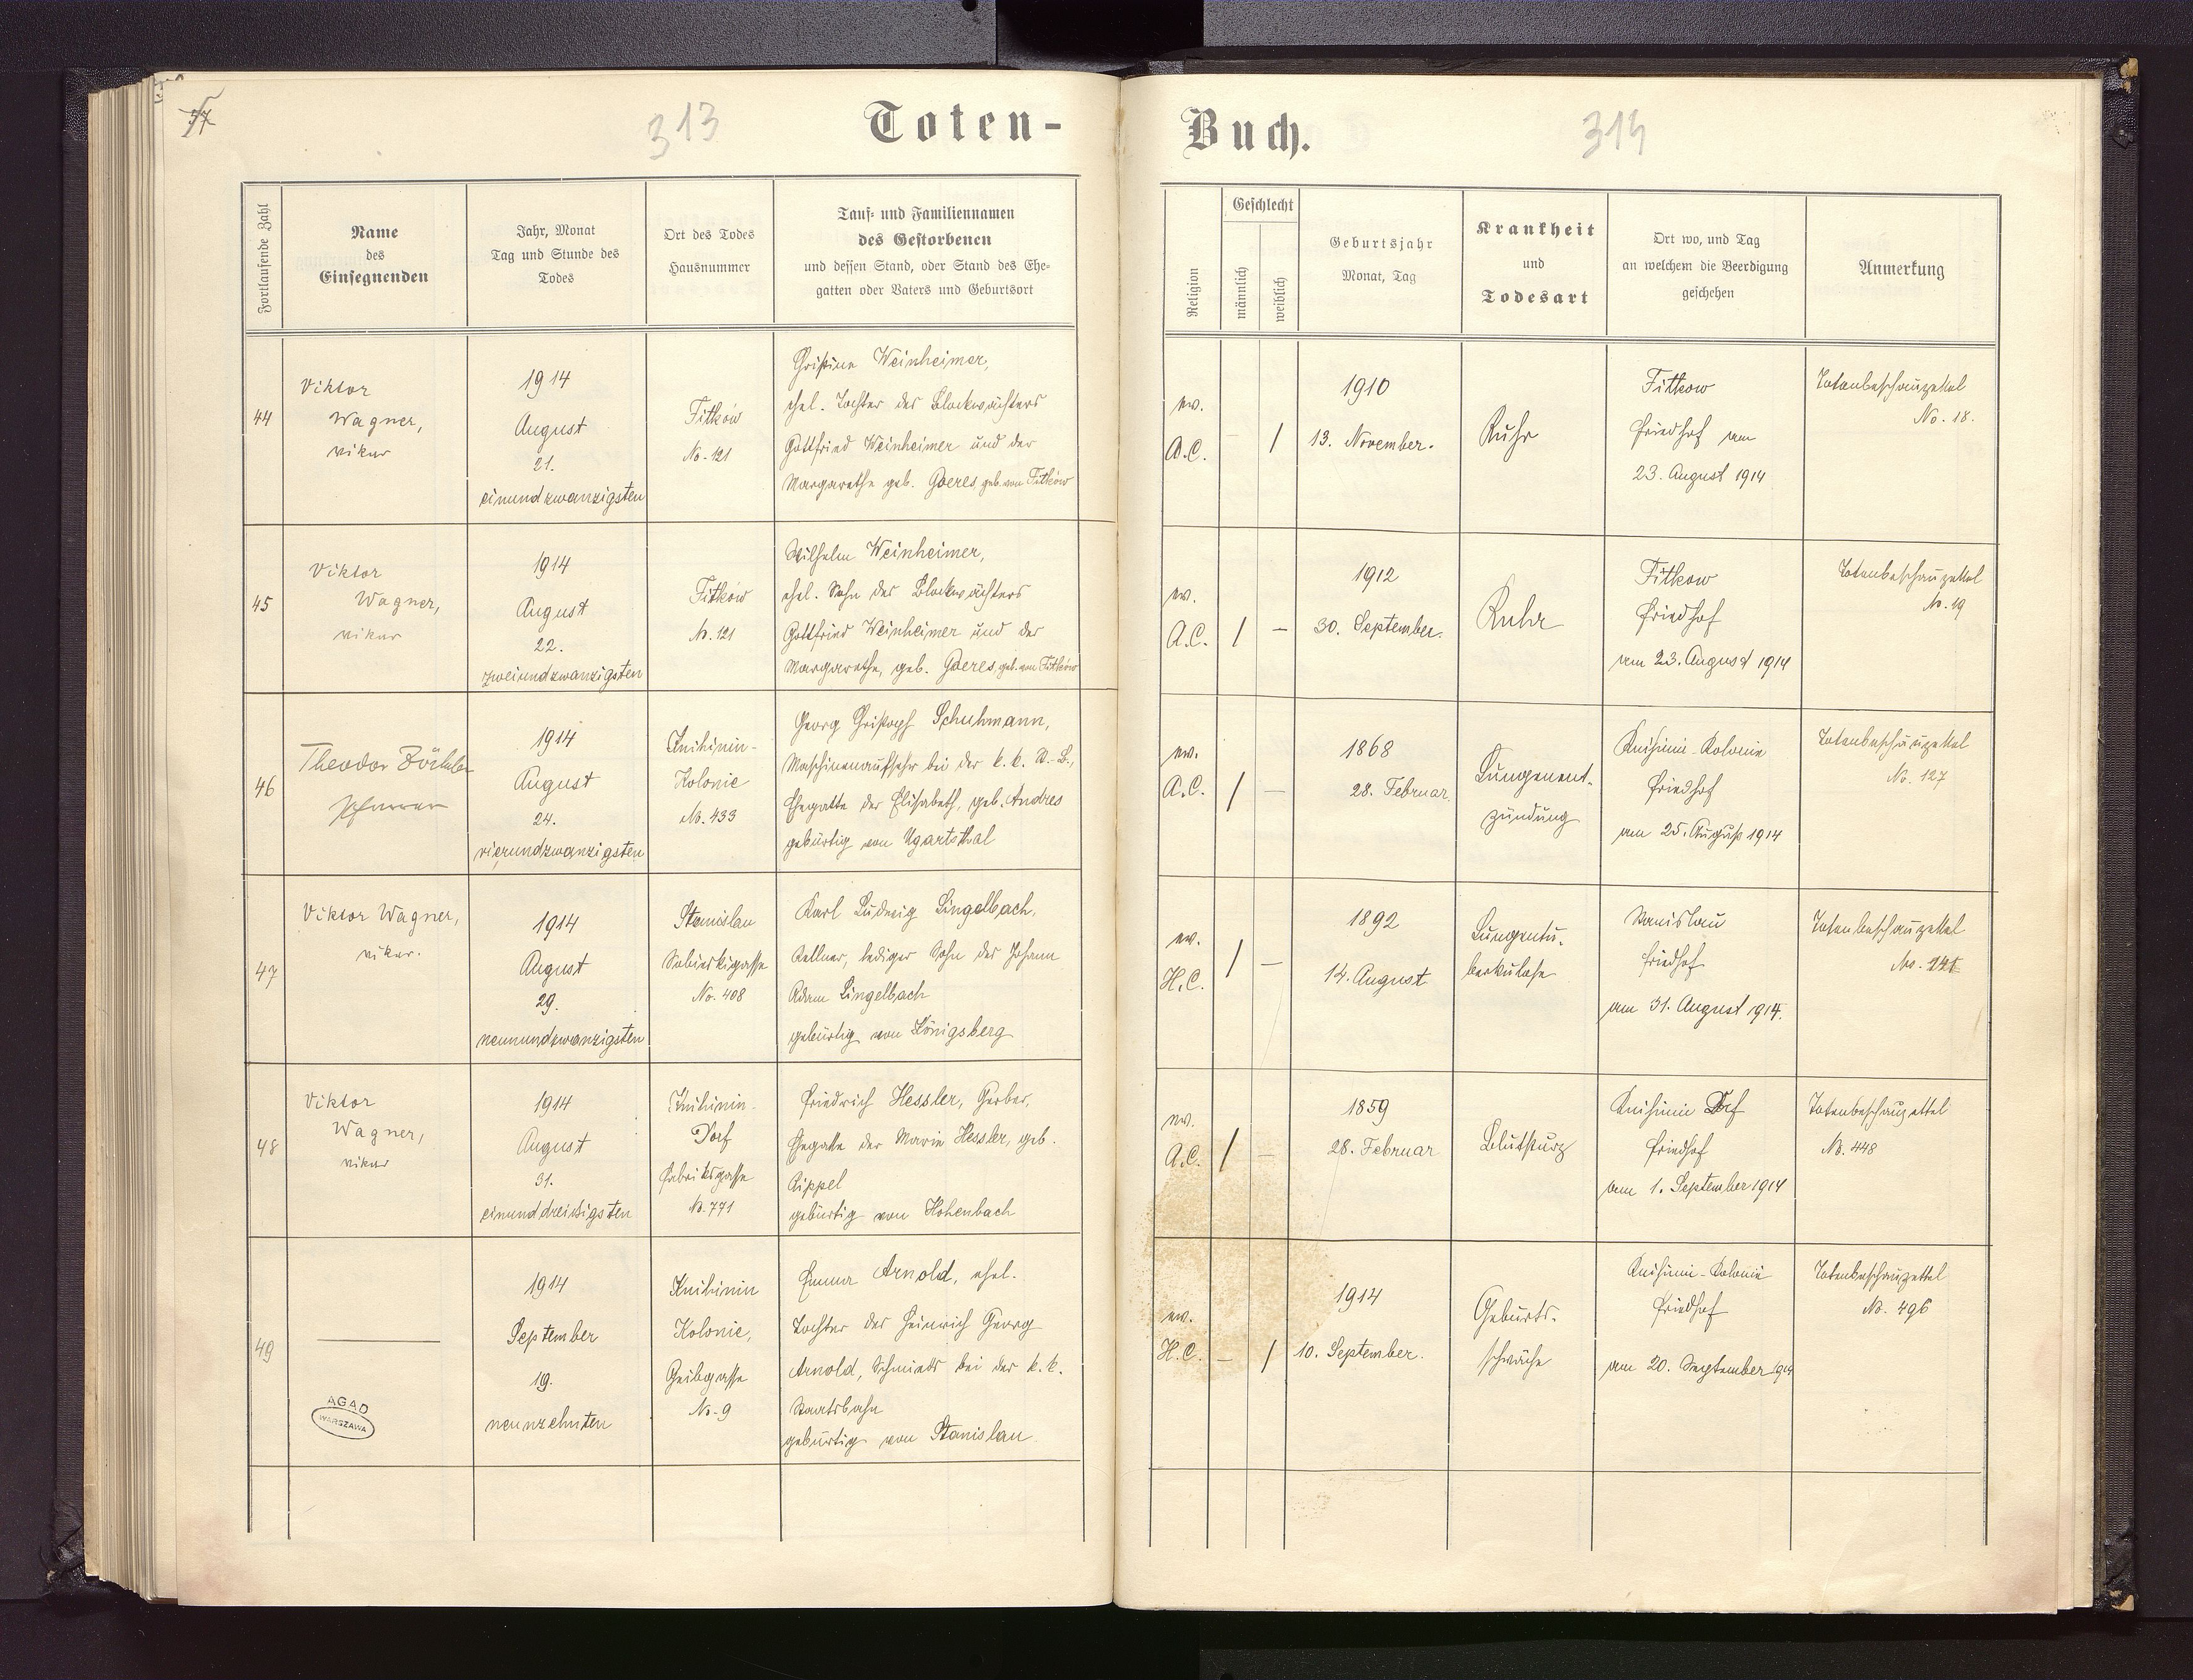 313
Toten-
Buch.
314
Fortlaufende Zahl
Name
des
Einsegnenden
Jahr, Monat
Tag und Stunde des
Todes
Ort des Todes
Hausnummer
Tauf- und Familiennamen
des Gestorbenen
und dessen Stand, oder Stand des Ehe-
gatten oder Vaters und Geburtsort
Religion
Geschlecht
männlich
weiblich
Geburtsjahr
Monat, Tag
Krankheit
und
Todesart
Ort wo, und Tag
an welchem die Beerdigung
geschehen
Anmerkung
44
Viktor
Wagner,
vikar
1914
August
21.
einundzwanzigsten
Fitków
No. 121
Christine Weinheimer,
ehel. Tochter des Blockwächters
Gottfried Weinheimer und der
Margarethe geb. Goeres, geb. von Fitków
ev.
A.C.
–
/
1910
13. November.
Ruhr
Fitkow
Friedhof am
23. August 1914
Totenbeschauzettel
No. 18.
45
Viktor
Wagner,
vikar
1914
August
22.
zweiundzwanzigsten
Fitków
No. 121
Wilhelm Weinheimer,
ehel. Sohn des Blockwächters
Gottfried Weinheimer und der
Margarethe, geb. Goeres, geb. von Fitków
ev.
A.C.
/
–
1912
30. September.
Ruhr
Fitkow
Friedhof
am 23. August 1914
Totenbeschauzettel
No. 19
46
Theodor Zöckler
Pfarrer
1914
August
24.
vierundzwanzigsten
Knihinin-
Kolonie
No. 433
Georg Christoph Schuhmann,
Maschinenaufseher bei der k.k. St.-B.,
Ehegatte der Elisabeth, geb. Andres
gebürtig von Ugartsthal
ev.
A.C.
/
–
1868
28. Februar.
Lungenent-
zündung
Knihinin-Kolonie
Friedhof
am 25. August 1914
Totenbeschauzettel
No. 127
47
Viktor Wagner,
vikar.
1914
August
29.
neunundzwanzigsten
Stanislau
Sobieskigasse
No. 408
Karl Ludwig Lingelbach,
Kellner, lediger Sohn des Johann
Adam Lingelbach
gebürtig von Königsberg
ev.
H.C.
/
–
1892
14. August
Lungentu-
berkulose
Stanislau
Friedhof
am 31. August 1914.
Totenbeschauzettel
No.
48
Viktor
Wagner,
vikar
1914
August
31.
einunddreißigsten
Knihinin-
Dorf
Fabriksgasse
No. 771
Friedrich Hessler, Gerber,
Ehegatte der Marie Hessler, geb.
Rippel
gebürtig von Hohenbach
ev.
A.C.
/
–
1859
28. Februar
Blutsturz
Knihinin Dorf
Friedhof
am 1. September 1914
Totenbeschauzettel
No. 448
49
1914
September
19.
neunzehnten
Knihinin
Kolonie,
Geibgasse
No. 9
Emma Arnold, ehel.
Tochter des Heinrich Georg
Arnold, Schmieds bei der k.k.
Staatsbahn
gebürtig von Stanislau
ev.
H.C.
–
/
1914
10. September.
Geburts-
schwäche
Knihinin-Kolonie
Friedhof
am 20. September 1914
Totenbeschauzettel
No. 496
AGAD
WARSZAWA